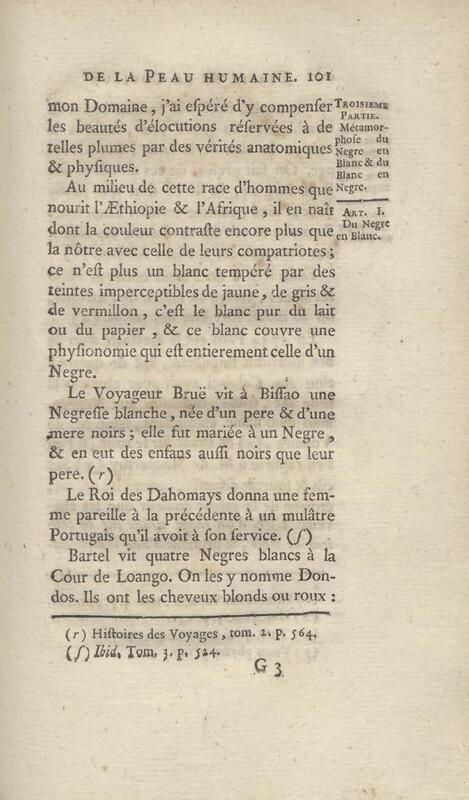 DE LA PEAU HUMAINE. 101
mon Domaine, j'ai eſpéré d'y compenſer
les beautés d'élocutions réſervées à de
telles plumes par des vérités anatomiques
& phyſiques.
Au milieu de cette race d'hommes que
nourit l'Æthiopie & l'Afrique, il en naît
dont la couleur contraſte encore plus que
la nôtre avec celle de leurs compatriotes;
ce n'eſt plus un blanc tempéré par des
teintes imperceptibles de jaune, de gris &
de vermillon, c'eſt le blanc pur du lait
ou du papier, & ce blanc couvre une
phyſionomie qui eſt entierement celle d'un
Negre.
Le Voyageur Bruë vit à Biſſao une
Negreſſe blanche, née d'un pere & d'une
mere noirs; elle fut mariée à un Negre,
& en eut des enfans auſſi noirs que leur
pere. (r)
Le Roi des Dahomays donna une fem-
me pareille à la précédente à un mulâtre
Portugais qu'il avoit à ſon ſervice. (ſ)
Bartel vit quatre Negres blancs à la
Cour de Loango. On les y nomme Don-
dos. Ils ont les cheveux blonds ou roux:
TROISIEME
PARTIE.
Métamor-
phoſe du
Negre en
Blanc & du
Blanc en
Negre.
ART. I.
Du Negre
en Blanc.
(r) Hiſtoires des Voyages, tom. 2. p. 564.
(ſ) Ibid. Tom. 3. p. 524.
G 3